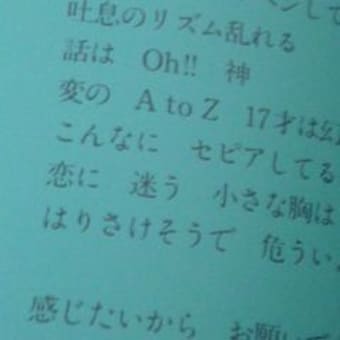 して
吐息のリズム乱れる
話は Oh!! 神
変の A to Z 17才は幻
こんなに セピアしてる
恋に 迷う 小さな胸は
はりさけそうで 危うい
感じたいから お願い